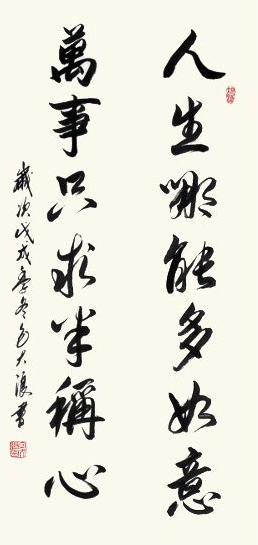 人生哪能多如意
萬事只求半稱心
歲次戊戌年冬月大浪書